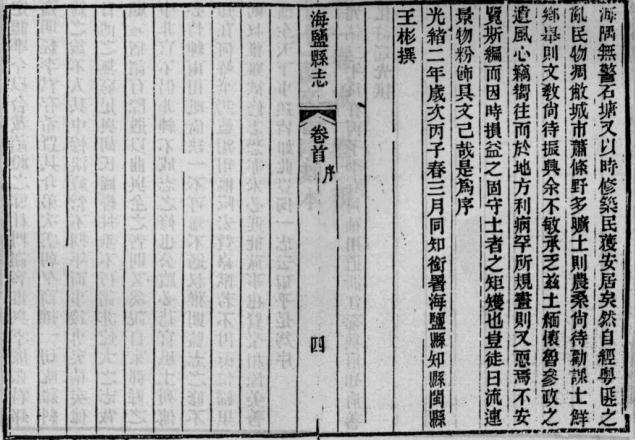 海隅無警石塘又以時修築民獲安居矣然自經粵匪之
亂民物凋敝城市蕭條野多曠土則農桑尚待勸課士鮮
鄉舉則文教尚待振興余不敏承乏茲土緬懷魯參政之
遺風心竊嚮往而於地方利病罕所規畫則又惄焉不安
覽斯編而因時損益之固守土者之矩矱也豈徒日流連
景物粉飾具文己哉是為序
光緒二年歲次丙子春三月同知銜署海鹽縣知縣閩縣
王彬撰
海鹽縣志
卷首 序
四